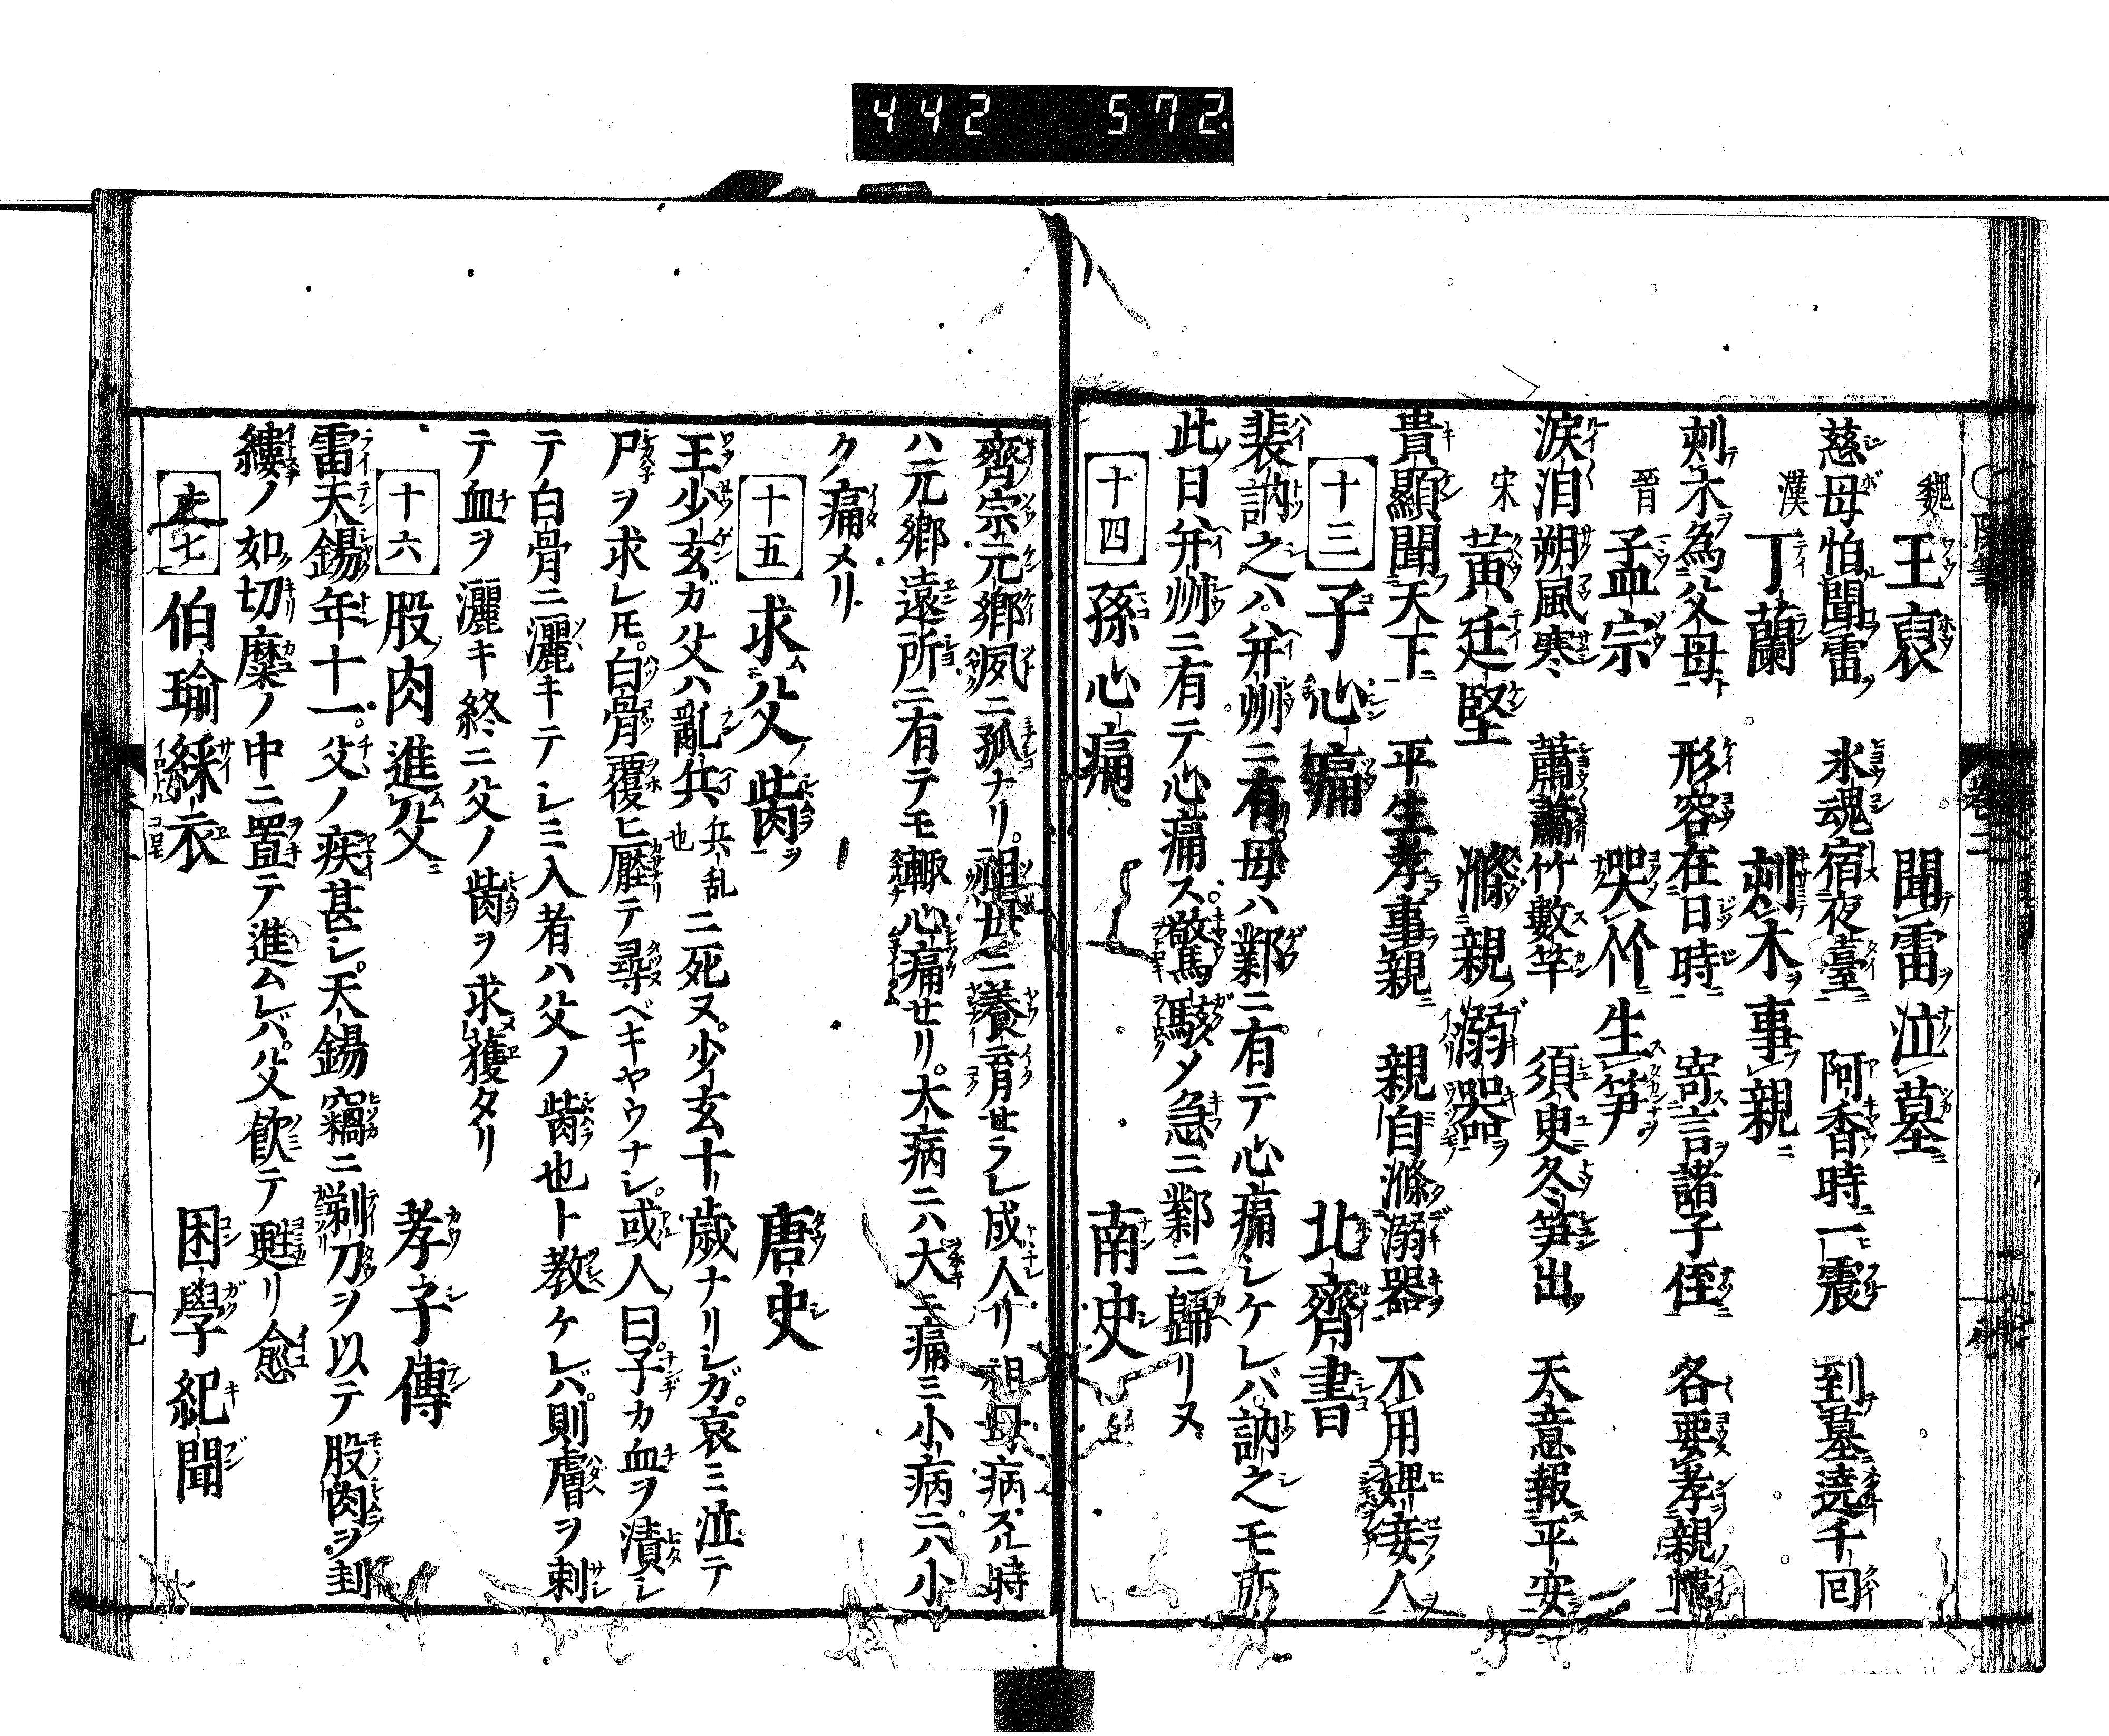 442 572
魏 王裒 聞雷泣墓
慈母怕聞雷 氷魂宿夜臺 阿香時一震 到墓遶千回
漢 丁蘭 刻木事親
刻木為父母 形容在日時 寄言諸子侄 各要孝親幃
晉 孟宗 哭竹生笋
淚滴朔風寒 蕭蕭竹數竿 須臾冬笋出 天意報平安
宋 黃廷堅 滌親溺器
貴顯聞天下 平生孝事親 親自滌溺器 不用婢妾人
十三 子心痛 北齊書
裴訥之ハ。弁州ニ有。母ハ鄴ニ有テ心痛シケレバ。訥之モ亦
此日弁州ニ有テ心痛ス。驚駭メ急ニ鄴ニ歸リヌ
十四 孫心痛 南史
齊宗元卿夙ニ孤ナリ。祖母ニ養育セラレ成人リ祖母病スル時
ハ元鄉遠所ニ有テモ輙心痛セリ。大病ニハ大ニ痛ミ小病ニハ小
ク痛メリ
十五 求父胔 唐史
王少玄ガ父ハ亂兵兵乱也ニ死ヌ。少玄十歳ナリシガ。哀ミ泣テ
尸ヲ求レ𪜈。白骨覆ヒ壓テ尋ベキヤウナシ。或人曰。子カ血ヲ漬シ
テ白骨ニ灑キテシミ入者ハ父ノ胔也ト教ケレバ。則膚ヲ刺
テ血ヲ灑キ終ニ父ノ胔ヲ求獲タリ
十六 股肉進父 孝子傳
雷天錫年十一。父ノ疾甚シ。天錫竊ニ剃刀ヲ以テ股肉ヲ刲
縷ノ如切糜ノ中ニ置テ進ムレバ。父飲テ甦リ愈
十七 伯瑜綵衣 困學紀聞
九